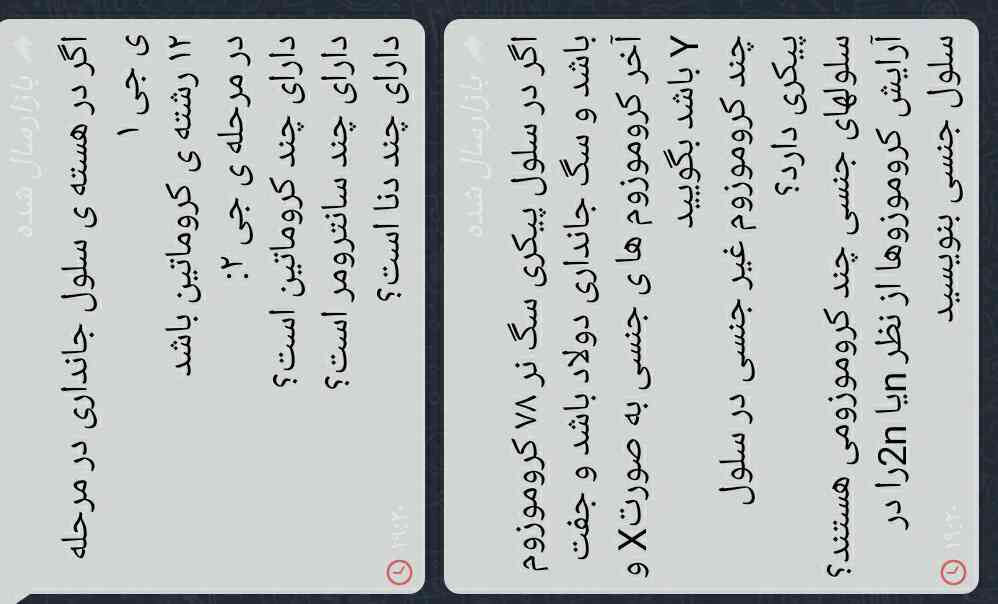 بازارسال شده
اگر در هسته ی سلول جانداری در مرحله
ی جی ۱
۱۲ رشته ی کروماتین باشد
در مرحله ی جی ۲:
دارای چند کروماتین است؟
دارای چند سانترومر است؟
دارای چند دنا است؟
۱۹:۲۰
بازارسال شده
اگر در سلول پیکری سگ نر ۷۸ کروموزوم
باشد و سگ جانداری دولاد باشد و جفت
آخر کروموزوم ها ی جنسی به صورتX و
Y باشد بگویید
چند کروموزوم غیر جنسی در سلول
پیکری دارد؟
سلولهای جنسی چند کروموزومی هستند؟
آرایش کروموزوها از نظر nیا 2nرا در
سلول جنسی بنویسید
۱۹:۲۰